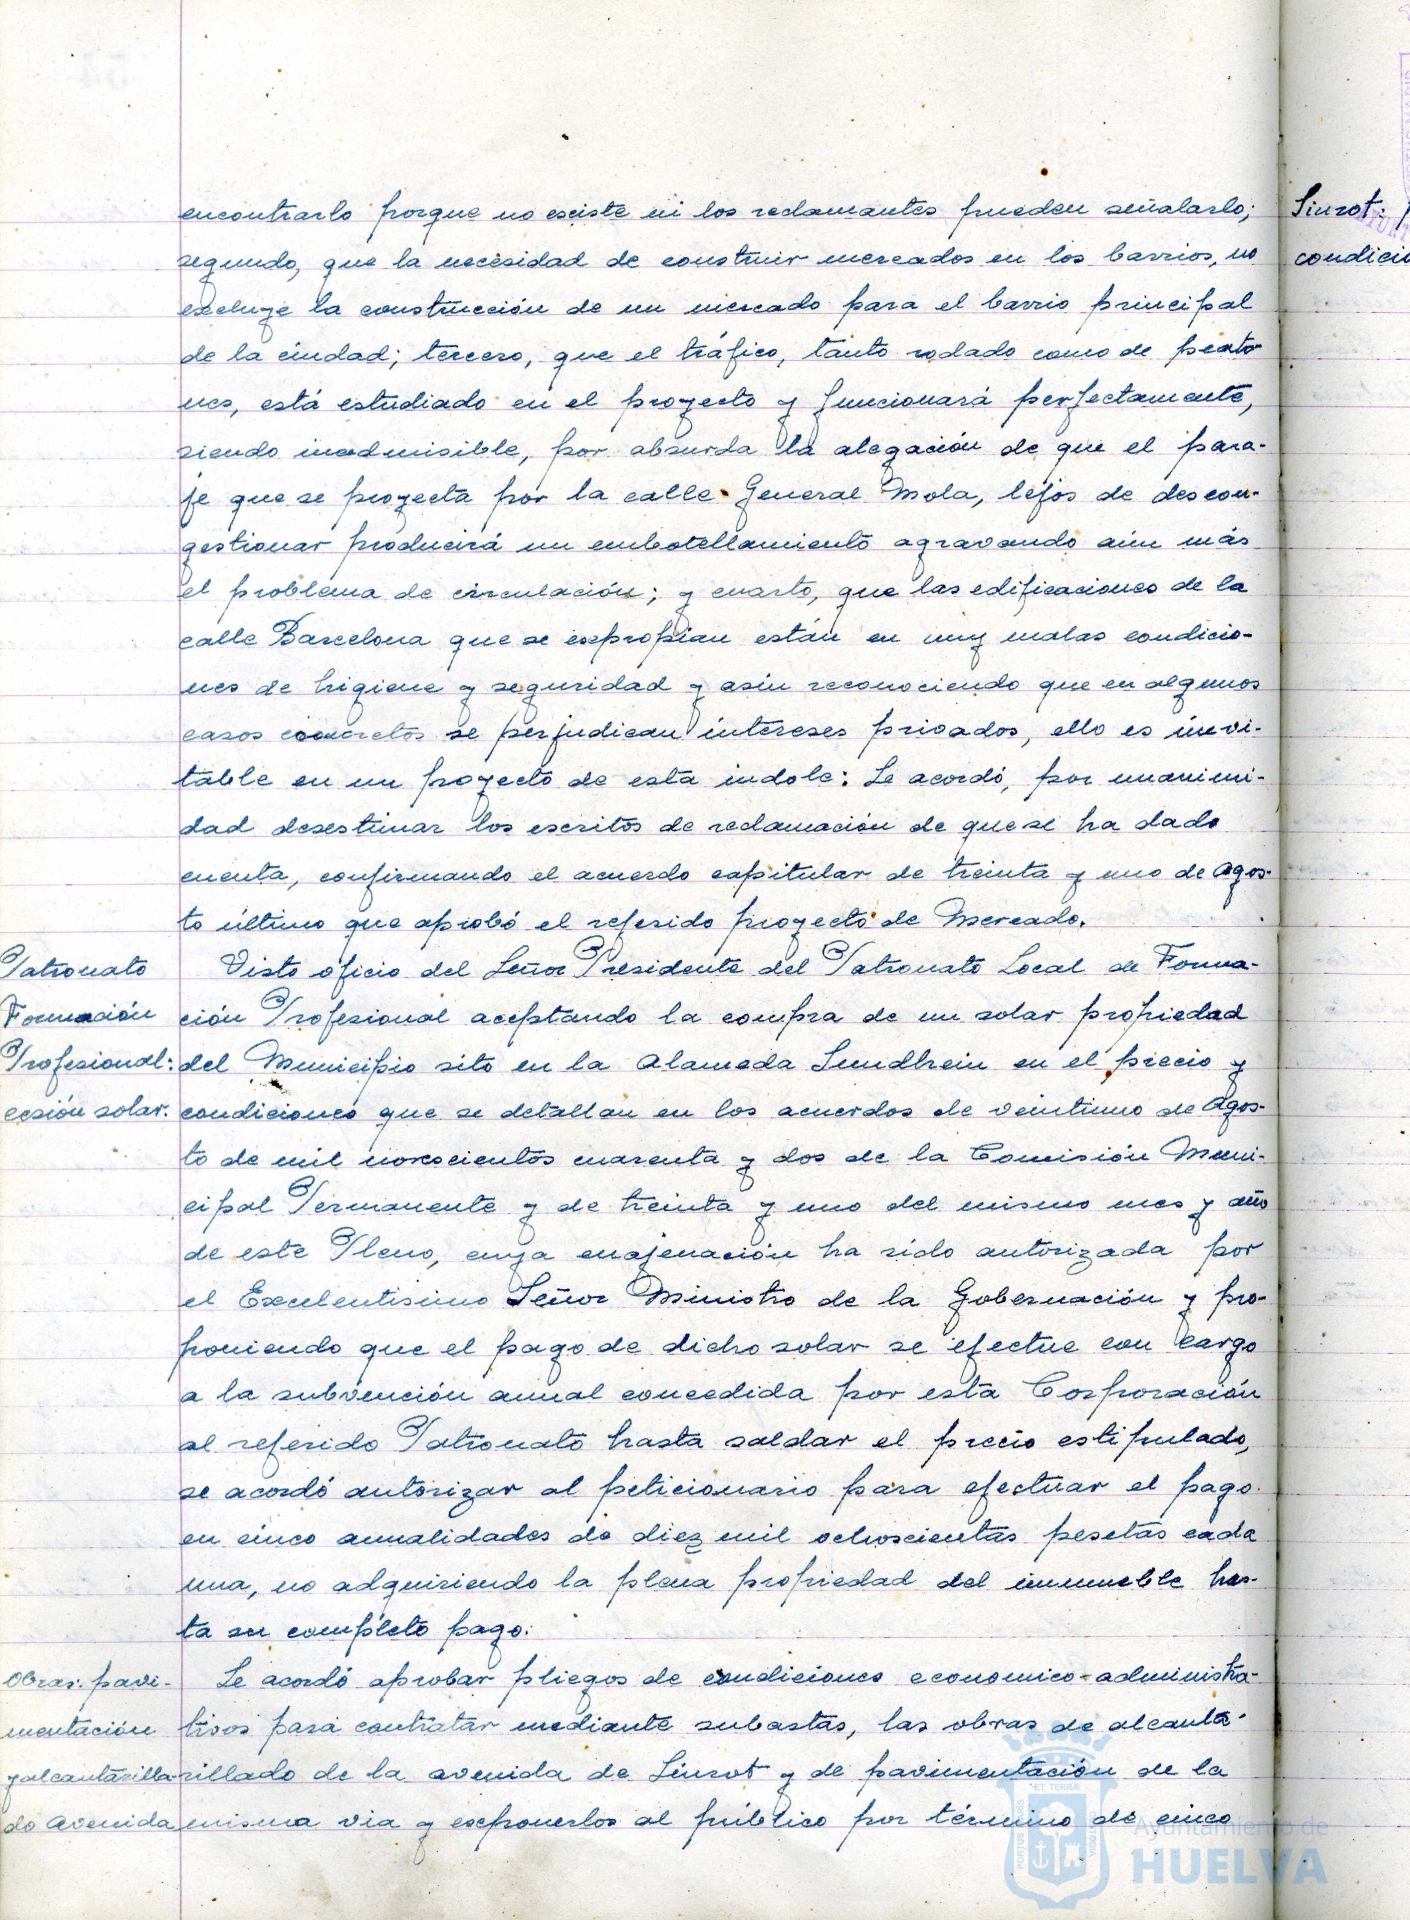 encontrarlo porque no existe ni los reclamantes pueden señalarlo;
segundo, que la necesidad de construir mercados en los barrios, no
excluye la construcción de un mercado para el barrio principal
de la ciudad; tercero, que el tráfico, tanto rodado como de peato-
nes, está estudiado en el proyecto y funcionará perfectamente,
siendo inadmisible, por absurda la alegación de que el para-
je que se proyecta por la calle General Mola, lejos de descon-
gestionar producirá un embotellamiento agravando aún más
el problema de circulación; y cuarto, que las edificaciones de la
calle Barcelona que se expropian están en muy malas condicio-
nes de higiene y seguridad y aún reconociendo que en algunos
casos concretos se perjudican intereses privados, ello es inevi-
table en un proyecto de esta índole: Se acordó, por unanimi-
dad desestimar los escritos de reclamación de que se ha dado
cuenta, confirmando el acuerdo capitular de treinta y uno de Agos-
to último que aprobó el referido proyecto de Mercado.
Patronato
Formación
Profesional:
cesión solar.
Visto oficio del Señor Presidente del Patronato Local de Forma-
ción Profesional aceptando la compra de un solar propiedad
del Municipio sito en la Alameda Sundhein en el precio y
condiciones que se detallan en los acuerdos de veintiuno de Agos-
to de mil novecientos cuarenta y dos de la Comisión Muni-
cipal Permanente y de treinta y uno del mismo mes y año
de este Pleno, cuya enajenación ha sido autorizada por
el Excelentisimo Señor Ministro de la Gobernación y pro-
poniendo que el pago de dicho solar se efectue con cargo
a la subvención anual concedida por esta Corporación
al referido Patronato hasta saldar el precio estipulado,
se acordó autorizar al peticionario para efectuar el pago
en cinco anualidades de diez mil ochoscientas pesetas cada
una, no adquiriendo la plena propiedad del inmueble has-
ta su completo pago.
Obras: pavi-
mentación
y alcantarilla-
do Avenida
Se acordó aprobar pliegos de condiciones economico-administra-
tivos para contratar mediante subastas, las obras de alcanta-
rillado de la avenida de Siurot y de pavimentación de la
misma via y exponerlos al público por término de cinco
Siurot:
condicio
Ayuntamiento de
HUELVA